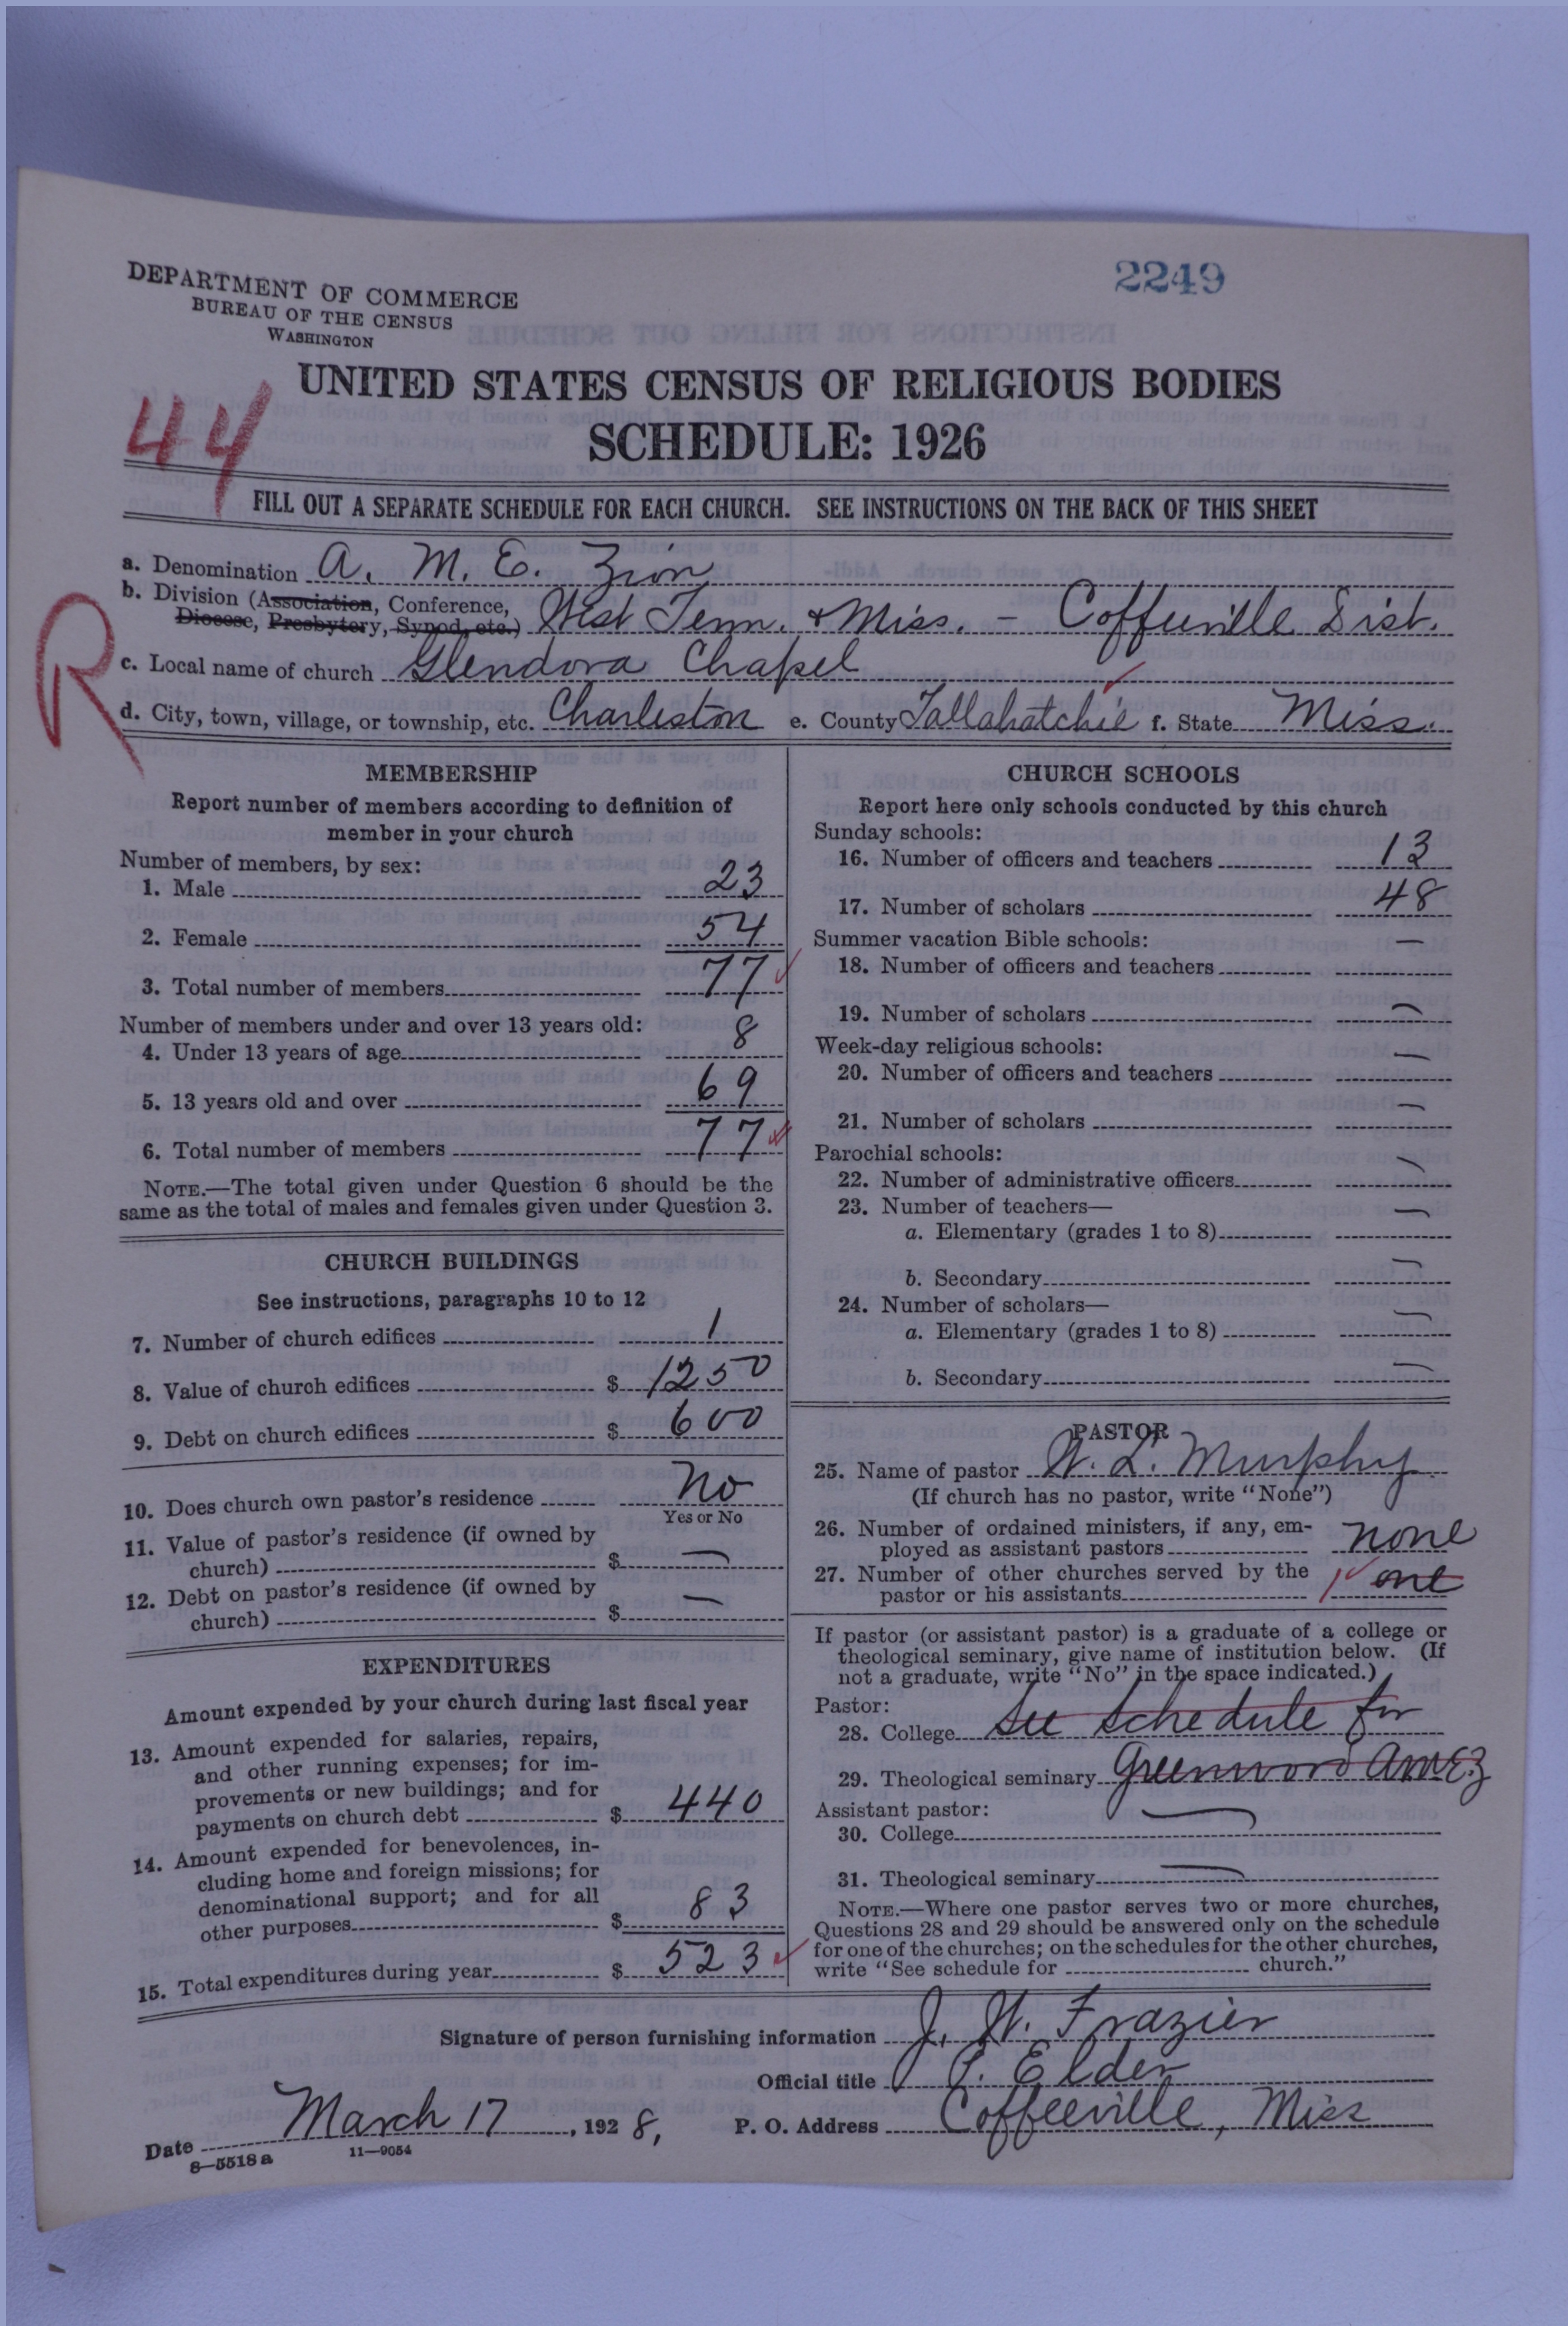 2249
DEPARTMENT OF COMMERCE
BUREAU OF THE CENSUS
WASHINGTON
UNITED STATES CENSUS OF RELIGIOUS BODIES
44
SCHEDULE: 1926
FILL OUT A SEPARATE SCHEDULE FOR EACH CHURCH. SEE INSTRUCTIONS ON THE BACK OF THIS SHEET
R
a. Denomination A. M. E. Zion
b. Division (Association, Conference, Diocese, Presbytery, Synod, etc.) West Tenn. & Miss. - Coffeeville Dist.
c. Local name of church Glendora Chapel
d. City, town, village, or township, etc. Charleston e. County Tallahatchie f. State Miss.
MEMBERSHIP
Report number of members according to definition of
member in your church
Number of members, by sex:
1. Male 23
2. Female 54
3. Total number of members 77
Number of members under and over 13 years old:
4. Under 13 years of age 8
5. 13 years old and over 69
6. Total number of members 77
NOTE.—The total given under Question 6 should be the
same as the total of males and females given under Question 3.
CHURCH BUILDINGS
See instructions, paragraphs 10 to 12
7. Number of church edifices 1
8. Value of church edifices $ 1250
9. Debt on church edifices $ 600
10. Does church own pastor's residence No
Yes or No
11. Value of pastor's residence (if owned by
church) $ —
12. Debt on pastor's residence (if owned by
church) $ —
EXPENDITURES
Amount expended by your church during last fiscal year
13. Amount expended for salaries, repairs,
and other running expenses; for im-
provements or new buildings; and for
payments on church debt $ 440
14. Amount expended for benevolences, in-
cluding home and foreign missions; for
denominational support; and for all
other purposes $ 83
15. Total expenditures during year $ 523
CHURCH SCHOOLS
Report here only schools conducted by this church
Sunday schools:
16. Number of officers and teachers 13
17. Number of scholars 48
Summer vacation Bible schools:
18. Number of officers and teachers —
19. Number of scholars —
Week-day religious schools:
20. Number of officers and teachers —
21. Number of scholars —
Parochial schools:
22. Number of administrative officers —
23. Number of teachers—
a. Elementary (grades 1 to 8) —
b. Secondary —
24. Number of scholars—
a. Elementary (grades 1 to 8) —
b. Secondary —
PASTOR
25. Name of pastor W. L. Murphy
(If church has no pastor, write "None")
26. Number of ordained ministers, if any, em-
ployed as assistant pastors none
27. Number of other churches served by the
pastor or his assistants 1 one
If pastor (or assistant pastor) is a graduate of a college or
theological seminary, give name of institution below. (If
not a graduate, write "No" in the space indicated.)
Pastor:
28. College See Schedule for
29. Theological seminary Greenwood AMEZ
Assistant pastor:
30. College —
31. Theological seminary —
NOTE.—Where one pastor serves two or more churches,
Questions 28 and 29 should be answered only on the schedule
for one of the churches; on the schedules for the other churches,
write "See schedule for church."
Signature of person furnishing information J. W. Frazier
Official title P. Elder
Date March 17, 1928, P. O. Address Coffeeville, Miss
8—5518a 11—9054